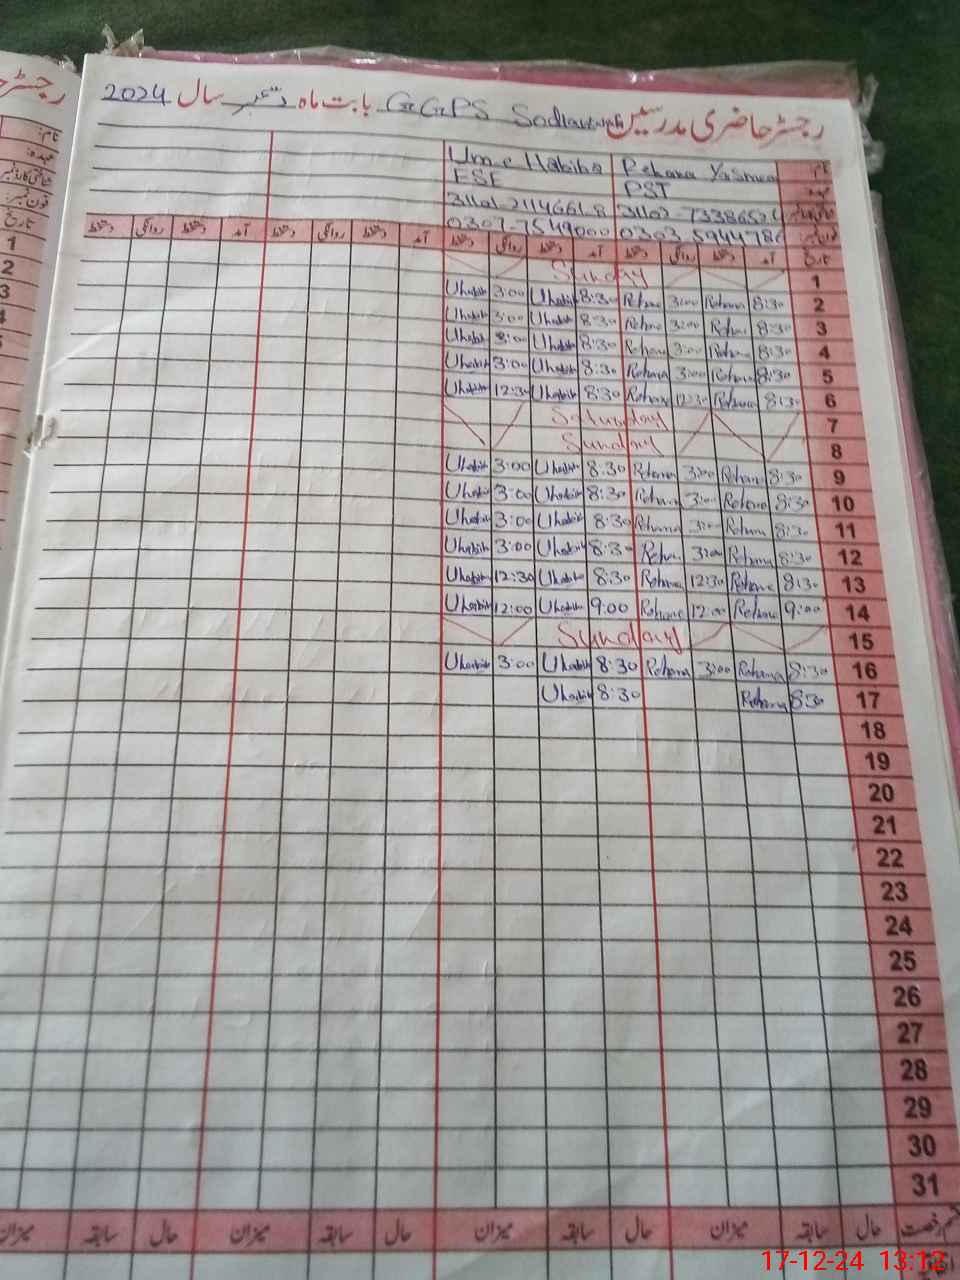 رجسٹر حاضری مدرسین GGPS بابت ماہ دسمبر سال 2024
نام Rehana Yasmeen Ume Habiba
عہدہ PST ESE
فون نمبر 0303 5944786 0307-7549000
تاریخ آمد دستخط روانگی دستخط آمد دستخط روانگی دستخط آمد دستخط روانگی دستخط آمد دستخط روانگی دستخط
1 Sunday
2 8:30 Rehana 3:00 Rehana 8:30 Uhabib 3:00 Uhabib
3 8:30 Rehana 3:00 Rehana 8:30 Uhabib 3:00 Uhabib
4 8:30 Rehana 3:00 Rehana 8:30 Uhabib 3:00 Uhabib
5 8:30 Rehana 3:00 Rehana 8:30 Uhabib 3:00 Uhabib
6 8:30 Rehana 12:30 Rehana 8:30 Uhabib 12:30 Uhabib
7 Saturday
8 Sunday
9 8:30 Rehana 3:00 Rehana 8:30 Uhabib 3:00 Uhabib
10 8:30 Rehana 3:00 Rehana 8:30 Uhabib 3:00 Uhabib
11 8:30 Rehana 3:00 Rehana 8:30 Uhabib 3:00 Uhabib
12 8:30 Rehana 3:00 Rehana 8:30 Uhabib 3:00 Uhabib
13 8:30 Rehana 12:30 Rehana 8:30 Uhabib 12:30 Uhabib
14 9:00 Rehana 12:00 Rehana 9:00 Uhabib 12:00 Uhabib
15 Sunday
16 8:30 Rehana 3:00 Rehana 8:30 Uhabib 3:00 Uhabib
17 8:30 Rehana 8:30 Uhabib
18
19
20
21
22
23
24
25
26
27
28
29
30
31
حال سابقہ میزان حال سابقہ میزان حال سابقہ میزان حال سابقہ میزان
17-12-24 13:12